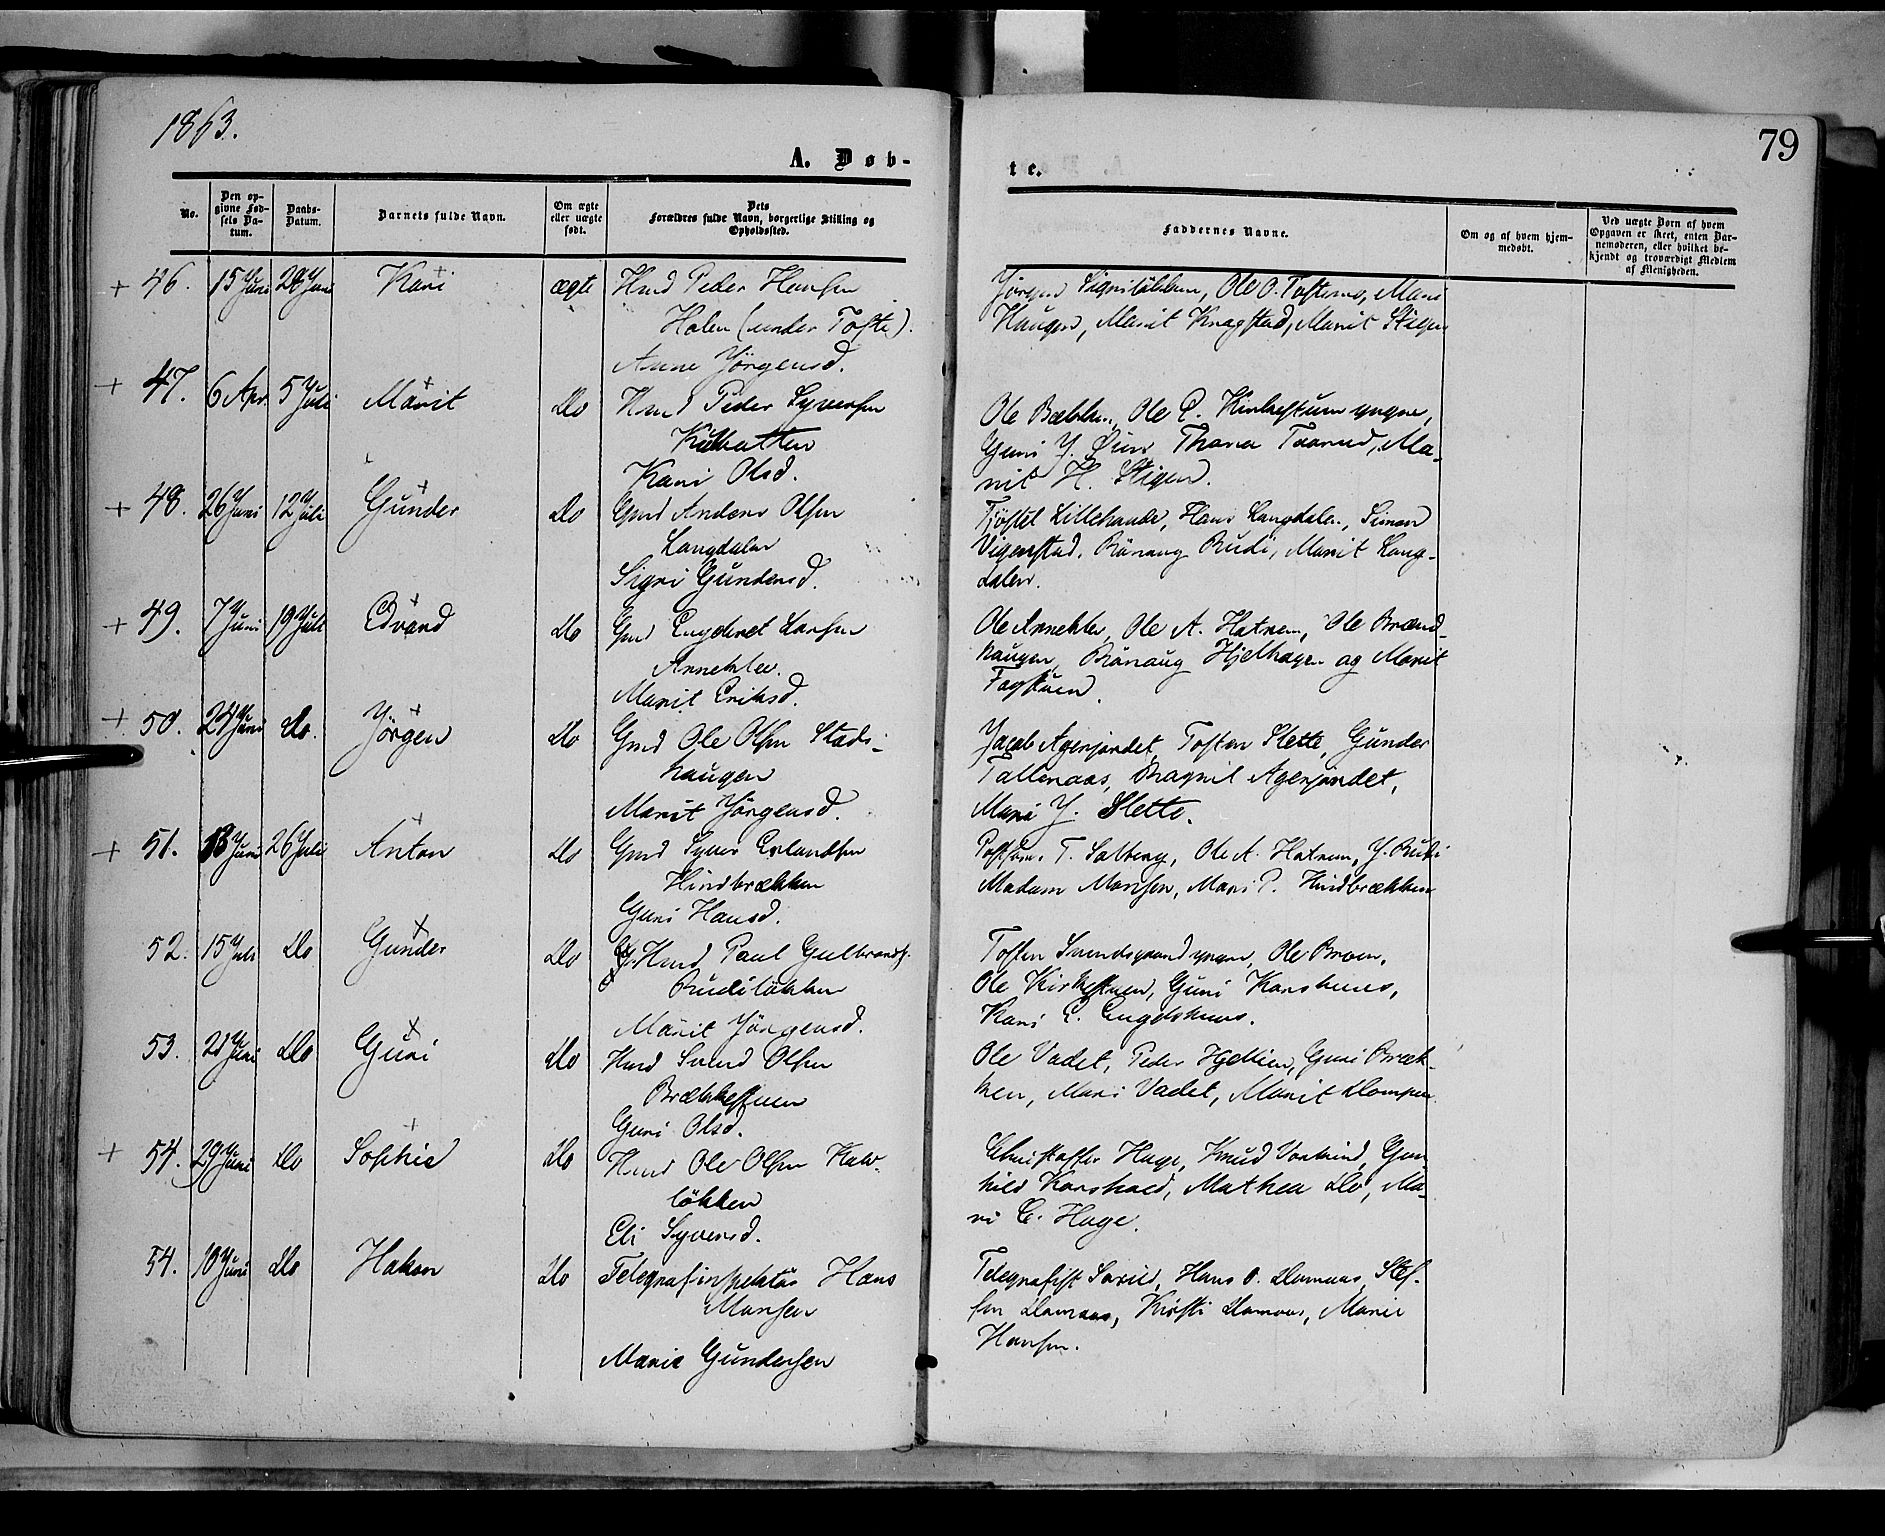 1863.
79
A. Døb-
te.
No.
Den op-
givne Fød-
sels Da-
tum.
Daabs-
Datum.
Barnets fulde Navn.
Om ægte
eller uægte
født.
Dets
Forældres fulde Navn, borgerlige Stilling og
Opholdssted.
Faddernes Navne.
Om og af hvem hjem-
medøbt.
Ved uægte Børn af hvem
Opgaven er skeet, enten Bar-
nemoderen, eller hvilket be-
kjendt og troværdigt Medlem
af Menigheden.
+ 46. 15 Juni Kari ægte Hmd Peder Hansen
Holen (under Tofte).
Anne Jörgensd.
Jörgen Ole O. Mari
Haugen, Marit Knagstad, Marit Stigen
+ 47. 6 Apr 5 Juli Marit Do Hmd Peder Syversen
Kari Olsd.
Ole Ole P. yngre,
Guri J. Øien, Thora Taarud, Ma-
rit H. Stigen.
+ 48. 26 Juni 12 Juli Gunder Do Gmd Anders Olsen
Langdalen
Sigri Gundersd.
Tjöstel Hans Langdalen, Simen
Vigenstad, Rönnaug Rudi, Marit Lang-
dalen.
+ 49. 7 Juni 19 Juli Edvard Do Gmd Engebret Larsen
Anneklev.
Marit Eriksd.
Ole Anneklev, Ole A. Hatrem, Ole Brænd-
haugen, Rönaug Hjelhagen og Marit
Fagstuen.
+ 50. 24 Juni Do. Jörgen Do Gmd Ole Olsen Stads-
haugen
Marit Jörgensd.
Jacob Agerjordet, Tosten Slette, Gunder
Tallenaas, Ragnil Agerjordet,
Mari J. Slette.
+ 51. 13 Juni 26 Juli Anton Do Gmd Syver Erlandsen
Hindbrækken
Guri Hansd.
T. Solberg, Ole A. Hatrem, J. Rudi
Madam Monsen, Mari P. Hindbrækken
52. 15 Juli Do Gunder Do Hmd Paul Gulbrands.
Rudilökken
Marit Jörgensd.
Tosten yngre, Ole Broen,
Ole Kirkestuen, Guri Korshuus,
Kari E. Engelshuus.
53. 21 Juni Do Guri Do Hmd Svend Olsen
Brækkestuen
Guri Olsd.
Ole Vadet, Peder Guri Bræk-
ken, Mari Vadet, Marit Dompen.
+ 54. 29 Juni Do Sophie Do Hmd Ole Olsen
lökken
Eli Syversd.
Christoffer Hage, Knud Gun-
hild Mathea Do, Ma-
ri C. Hage.
54. 10 Juni Do Hakon Do Telegrafinspektör Hans
Monsen
Marie Gundersen
Telegrafist Hans O. Domaas, Stef-
fen Domaas, Kirsti Domaas, Marie
Hansen.